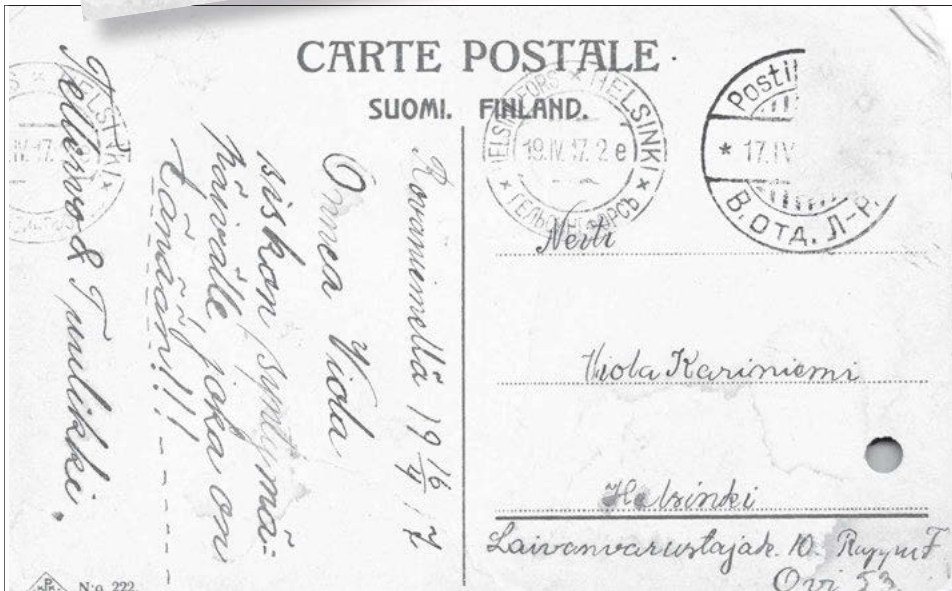 CARTE POSTALE.
SUOMI. FINLAND.
HELSINGFORS * HELSINKI * ГЕЛЬСИНГФОРСЪ *
19.IV.17. 2 e
Postil
* 17.IV
В. ОТД. Л-Р.
HELSINKI *
.IV.17.
Rovaniemellä 19 16/4 17
Oma Viola
siskon syntymä-
päivälle joka on
tänään!!!
Tellervo & Tuulikki.
Neiti
Viola Kariniemi
Helsinki
Laivanvarustajak. 10. Rappu F
Ovi 53.
N:o 222